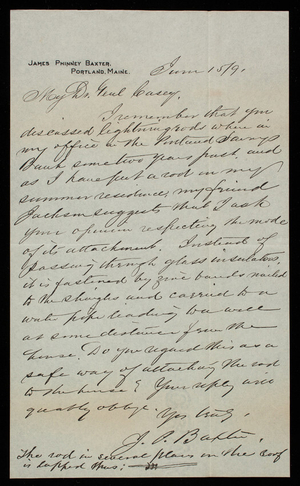 James Phinney Baxter,
Portland, Maine.
June 15/91
My Dr. Genl Casey,
I remember that you
discussed lightning rods when in
my office in the Portland Savings
Bank some two years past, and
as I have put a rod on my
summer residence, my friend
Jackson suggests that I ask
your opinion respecting the mode
of its attachment. Instead of
passing through glass insulators,
it is fastened by zinc bands nailed
to the shingles and carried to a
water pipe leading to a well
at some distance from the
house. Do you regard this as a
safe way of attaching the rod
to the house? Your reply will
greatly oblige.
Yrs truly,
J. P. Baxter.
The rod in several places on the roof
is lapped thus: